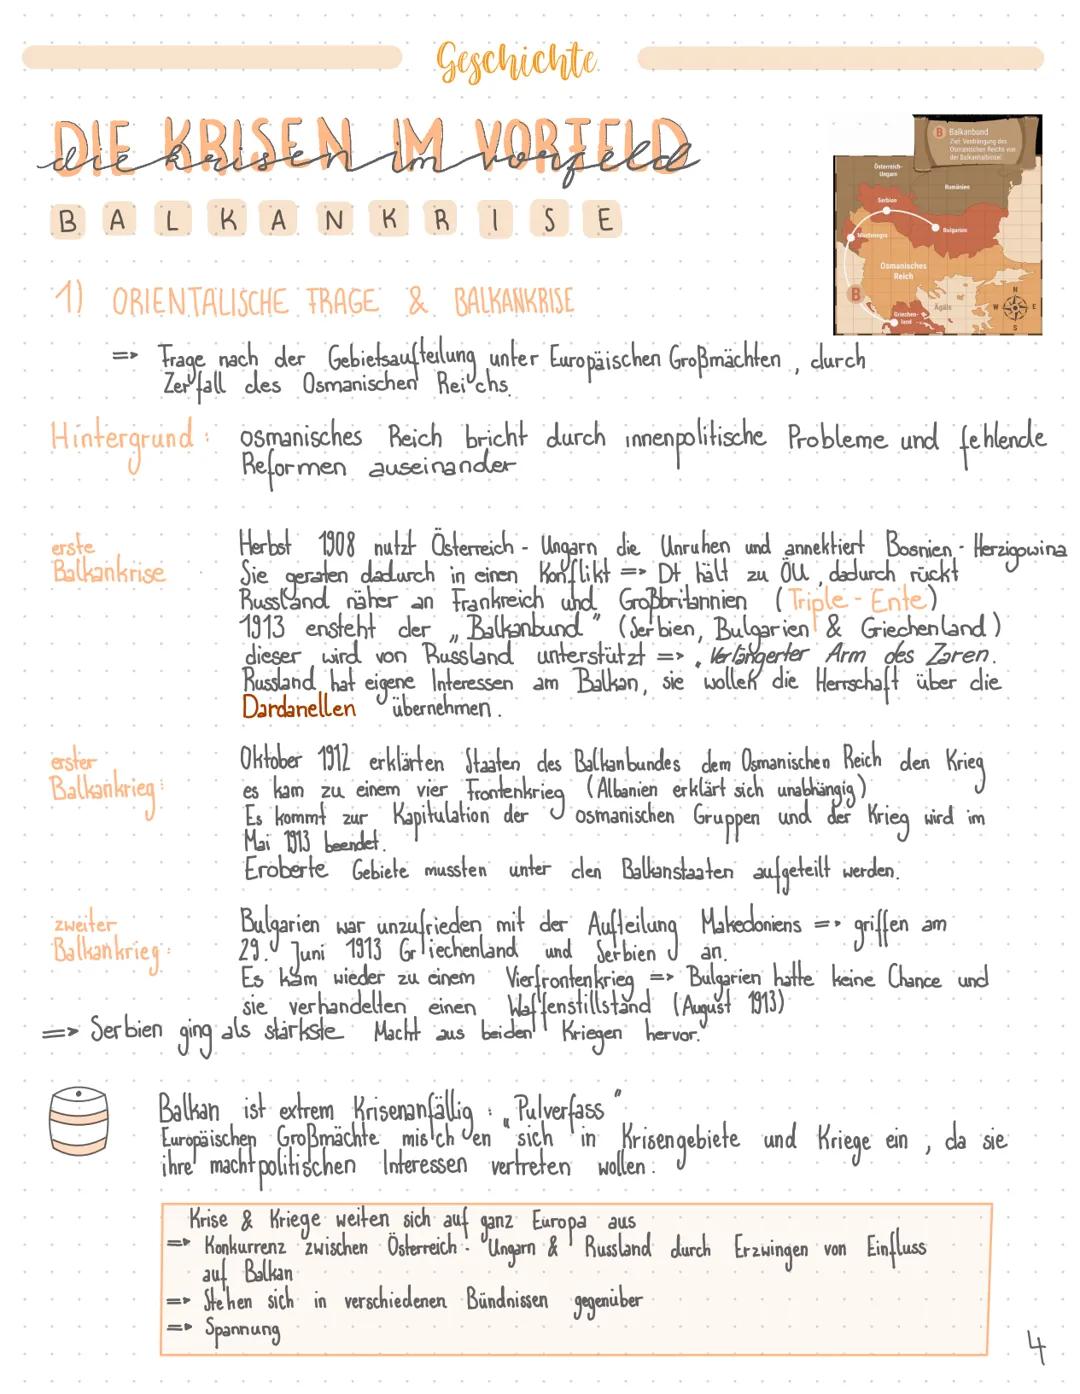 Geschichte
DIE KRISEN IM VORFELD
die krisen im vorfeld
BALKANKRISE
B Balkanbund
Ziel: Verdrängung des
Osmanischen Reichs von
der Balkanhalbinsel
Österreich-
Ungarn
Rumänien
Serbien
Bulgarien
Montenegro
Osmanisches
Reich
B
Ägäis
Griechen-
land
N
W E
S
1) ORIENTALISCHE FRAGE & BALKANKRISE
=> Frage nach der Gebietsaufteilung unter Europäischen Großmächten, durch
Zerfall des Osmanischen Reichs.
Hintergrund: osmanisches Reich bricht durch innenpolitische Probleme und fehlende
Reformen auseinander
erste
Balkankrise
Herbst 1908 nutzt Österreich-Ungarn die Unruhen und annektiert Bosnien-Herzigowina
Sie geraten dadurch in einen Konflikt => Dt hält zu ÖU, dadurch rückt
Russland näher an Frankreich und Großbritannien (Triple-Ente)
1913 ensteht der „Balkanbund" (Serbien, Bulgarien & Giechenland)
dieser wird von Russland unterstützt => „Verlängerter Arm des Zaren.
Russland hat eigene Interessen am Balkan, sie wollen die Herrschaft über die
Dardanellen übernehmen.
erster
Balkankrieg:
Oktober 1912 erklärten Staaten des Balkanbundes dem Osmanischen Reich den Krieg
es kam zu einem vier Frontenkrieg (Albanien erklärt sich unabhängig)
Es kommt zur Kapitulation der osmanischen Gruppen und der Krieg wird im
Mai 1913 beendet.
Eroberte Gebiete mussten unter den Balkanstaaten aufgeteilt werden.
zweiter
Balkankrieg:
Bulgarien war unzufrieden mit der Aufteilung Makedoniens => griffen am
29. Juni 1913 Griechenland und Serbien an.
Es kam wieder zu einem Vierfrontenkrieg => Bulgarien hatte keine Chance und
sie verhandelten einen Waffenstillstand (August 1913)
=> Serbien ging als stärkste Macht aus beiden Kriegen hervor.
Balkan ist extrem Krisenanfällig: „Pulverfass"
Europäischen Großmächte mischen sich in Krisengebiete und Kriege ein, da sie
ihre machtpolitischen Interessen vertreten wollen.
Krise & Kriege weiten sich auf ganz Europa aus
=> Konkurrenz zwischen Österreich-Ungarn & Russland durch Erzwingen von Einfluss
auf Balkan
=> Stehen sich in verschiedenen Bündnissen gegenüber
=> Spannung
4